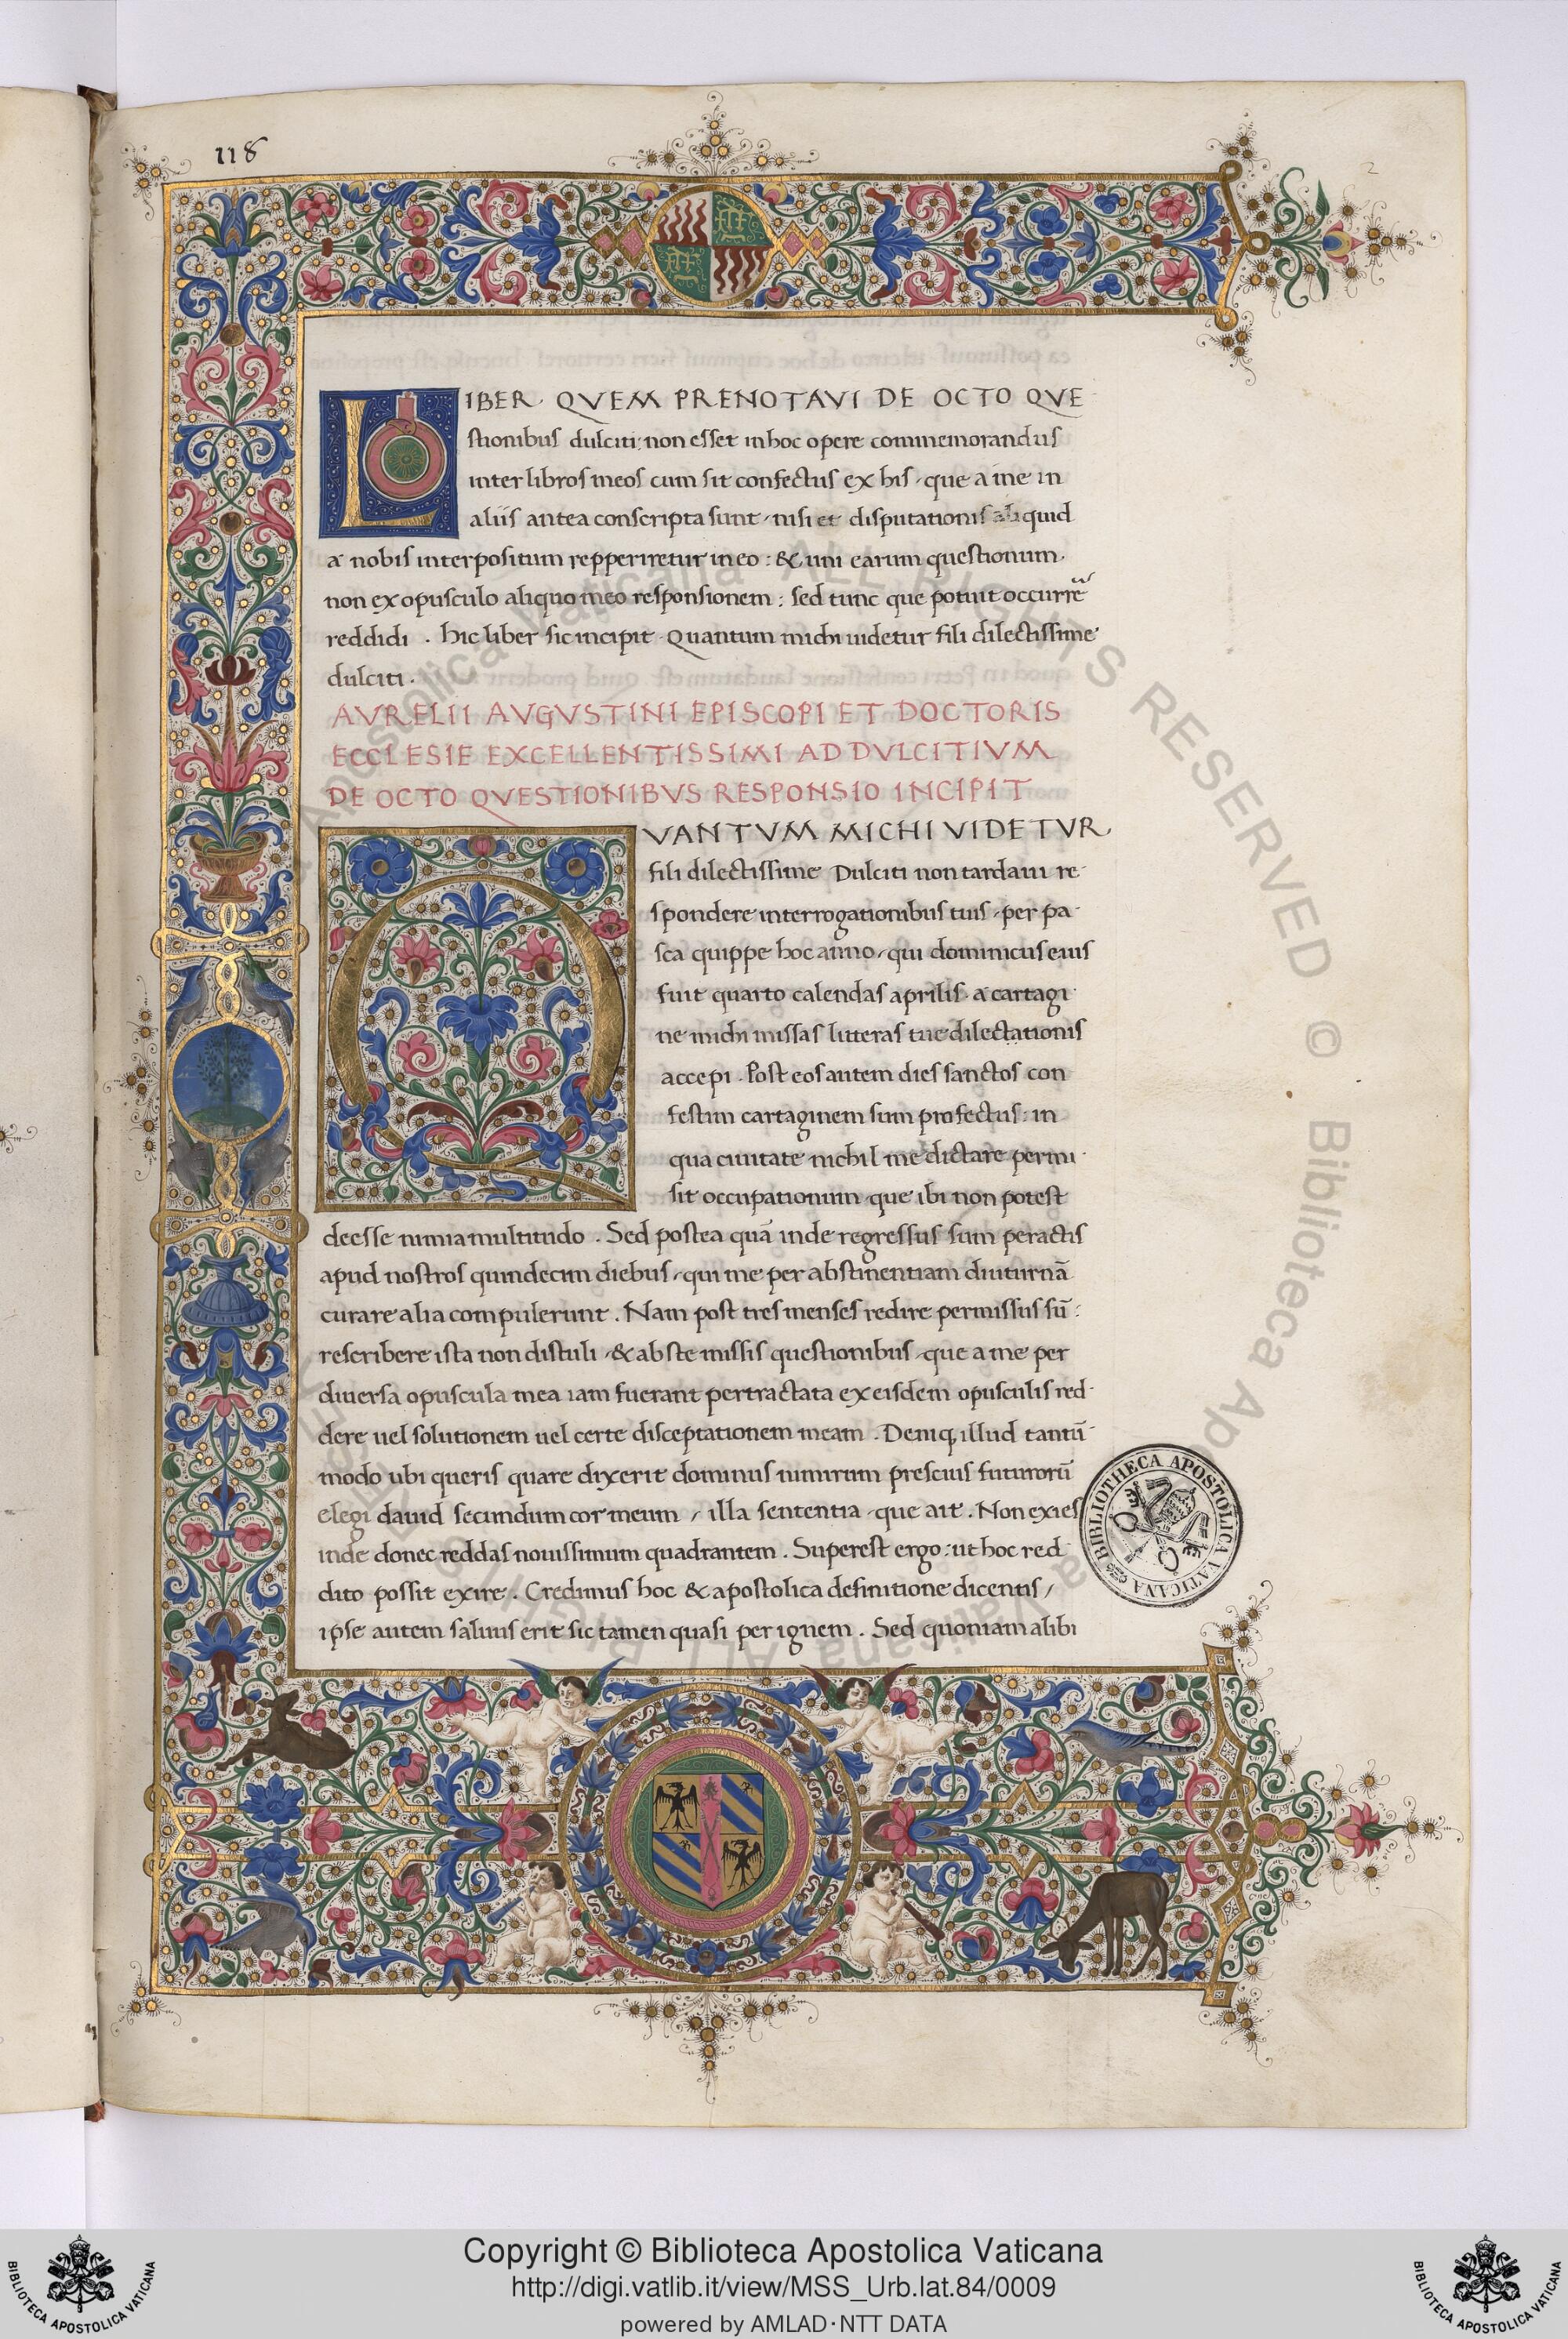 118
2
LIBER. QVEM PRENOTAVI DE OCTO QVE
stionibus dulciti: non esset in hoc opere commemorandus
inter libros meos cum sit confectus ex his, que a me in
aliis antea conscripta sunt, nisi et disputationis aliquid
a nobis interpositum repperiretur in eo: & uni earum questionum.
non ex opusculo aliquo meo responsionem: sed tunc que potuit occurre
reddidi. Hic liber sic incipit. Quantum michi uidetur fili dilectissime
dulciti.
AVRELII AVGVSTINI EPISCOPI ET DOCTORIS
ECCLESIE EXCELLENTISSIMI AD DVLCITIVM
DE OCTO QVESTIONIBVS RESPONSIO INCIPIT
QVANTVM MICHI VIDETVR
fili dilectissime Dulciti non tardaui re-
spondere interrogationibus tuis, per pa-
sca quippe hoc anno, qui dominicus eius
fuit quarto calendas aprilis. a cartagi-
ne michi missas litteras tue dilectationis
accepi. Post eos autem dies sanctos con
festim cartaginem sum profectus: in
qua ciuitate nichil me dictare permi-
sit occupationum, que ibi non potest
deesse nimia multitudo. Sed postea quā inde regressus sum peractis
apud nostros quindecim diebus, qui me per abstinentiam diuturnā
curare alia compulerunt. Nam post tres menses redire permissus sū:
rescribere ista non distuli, & abs te missis questionibus, que a me per
diuersa opuscula mea iam fuerant pertractata ex eisdem opusculis red-
dere uel solutionem uel certe disceptationem meam. Deniq; illud tantū-
modo ubi queris quare dixerit dominus nimirum prescius futurorū
elegi dauid secundum cor meum, illa sententia, que ait. Non exies
inde donec reddas nouissimum quadrantem. Superest ergo: ut hoc red
dito possit exire. Credimus hoc & apostolica definitione dicentis,
ipse autem saluus erit sic tamen quasi per ignem. Sed quoniam alibi
BIBLIOTHECA APOSTOLICA VATICANA
Apostolica Vaticana ALL RIGHTS RESERVED © Biblioteca Apostolica Vaticana ALL RIGHTS RESERVED
Copyright © Biblioteca Apostolica Vaticana
http://digi.vatlib.it/view/MSS_Urb.lat.84/0009
powered by AMLAD·NTT DATA
BIBLIOTECA APOSTOLICA VATICANA
BIBLIOTECA APOSTOLICA VATICANA